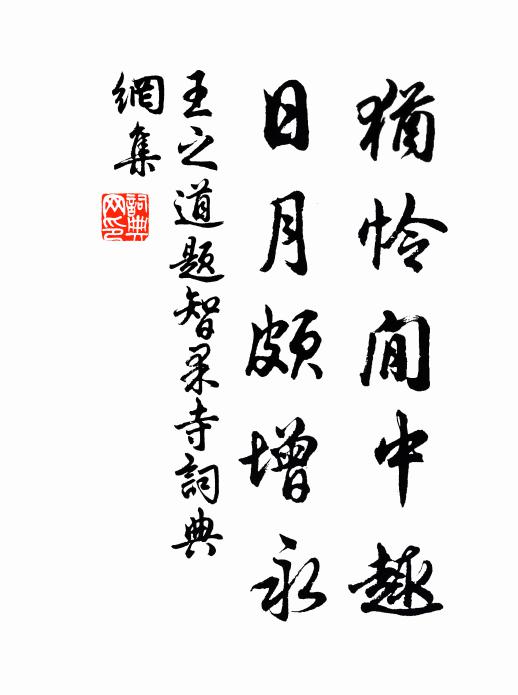 猶怜閒中趣
日月頗增永
王之道題智果寺詞典
網集
詞典
网印